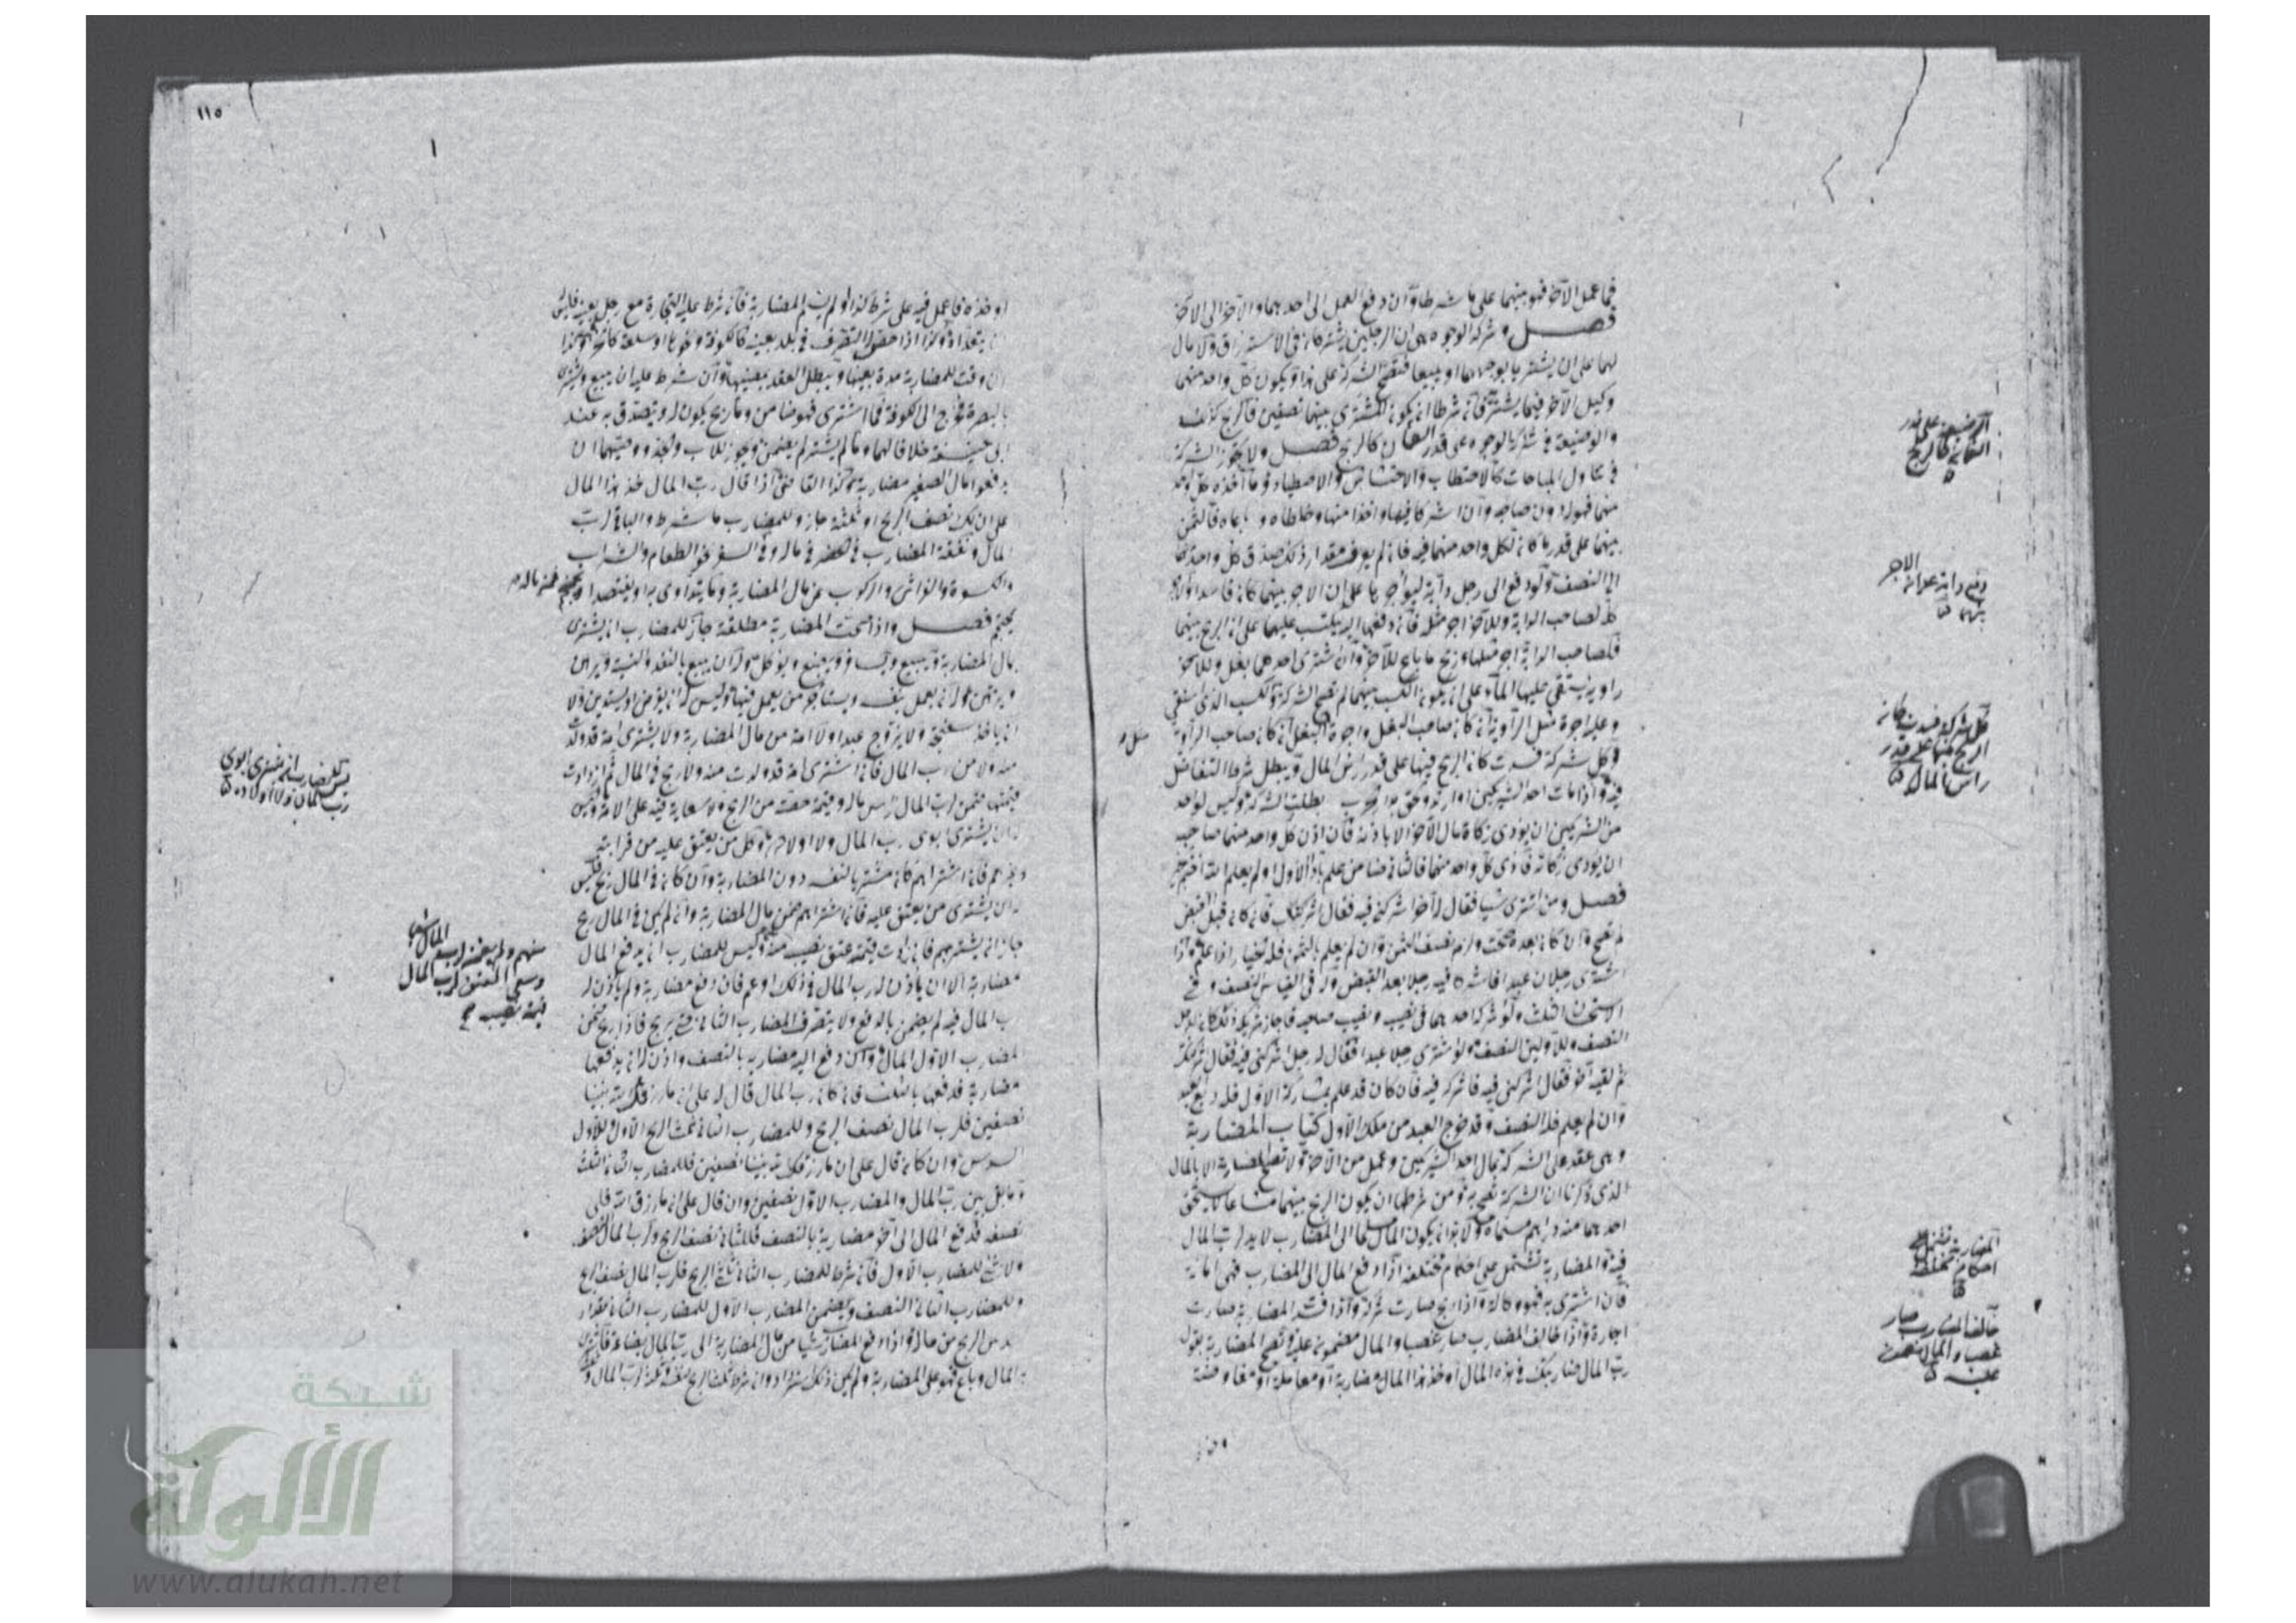 فما عمل الآخر فهو بينهما على ما شرطا وان دفع العمل الى احدهما والآخر الى الآخر
فصل وشركة الوجوه هي ان الرجلين يشتركان في الاسترزاق ولا مال
لهما على ان يشتريا بوجوههما ويبيعا فتصح الشركة على هذا ويكون كل واحد منهما
وكيل الآخر فيما يشتريه فان شرطا ان يكون المشترى بينهما نصفين فالربح كذلك
والوضيعة في شركة الوجوه على قدر الضمان كالربح فصل ولا يجوز الشركة
في تناول المباحات كالاحتطاب والاحتشاش والاصطياد وما اخذه كل واحد
منهما فهو له دون صاحبه وان اشتركا فيها واخذا منها وخلطاه وباعاه فالثمن
بينهما على قدر ما كان لكل واحد منهما فيه فان لم يعرف مقدار ذلك صدق كل واحد منهما
الى النصف ولو دفع الى رجل دابة ليؤاجرها على ان الاجر بينهما كان فاسدا والاجر
كله لصاحب الدابة وللآخر اجر مثله فان دفعها اليه ليكتسب عليها على ان الربح بينهما
فلصاحب الدابة اجر مثلها وربح ما باع للآخر وان اشترى احدهما بغل وللآخر
راوية يستقي عليها الماء على ان يكون الكسب بينهما لم تصح الشركة والكسب الذي استقى
وعليه اجرة مثل الراوية ان كان صاحب البغل واجرة البغل ان كان صاحب الراوية
وكل شركة فسدت كان الربح فيها على قدر رأس المال ويبطل شرط التفاضل
فيه واذا مات احد الشريكين او ارتد ولحق بدار الحرب بطلت الشركة وليس لواحد
من الشريكين ان يؤدي زكاة مال الآخر الا باذنه فان اذن كل واحد منهما صاحبه
ان يؤدي زكاته فادى كل واحد منهما فالثاني ضامن علم باداء الاول او لم يعلم
فصل ومن اشترى شيئا فقال له آخر اشركني فيه فقال اشركتك فان كان قبل القبض
لم تصح وان كان بعده صحت ولزمه نصف الثمن وان لم يعلم بالثمن فله الخيار اذا علم واذا
اشترى رجلان عبدا فاشركا فيه رجلا بعد القبض فله في القياس النصف وفي
الاستحسان الثلث ولو اشركه احدهما في نصيبه ونصيب صاحبه فاجاز شريكه ذلك كان للرجل
النصف وللاولين النصف ولو اشترى رجل عبدا فقال له رجل اشركني فيه فقال اشركتك
ثم لقيه آخر فقال اشركني فيه فاشركه فيه فان كان قد علم بمشاركة الاول فله ربع العبد
وان لم يعلم فله النصف وقد خرج العبد من ملك الاول كتاب المضاربة
وهي عقد على الشركة بمال احد الشريكين وعمل من الآخر ولا تصح المضاربة الا بالمال
الذي ذكرنا ان الشركة تصح به ومن شرطها ان يكون الربح بينهما مشاعا لا يستحق
احدهما منه دراهم مسماة ولا بد ان يكون المال مسلما الى المضارب لا يد لرب المال
فيه والمضاربة تشتمل على احكام مختلفة اذا دفع المال الى المضارب فهي امانة
فان اشترى به فهو وكالة واذا ربح صارت شركة واذا فسدت المضاربة صارت
اجارة واذا خالف المضارب صار غصبا والمال مضمون عليه وتصح المضاربة بقول
رب المال ضاربتك في هذا المال او خذ هذا المال مضاربة او معاملة او مفاوضة
الوضيعة على قدر
الضمان كالربح
دفع دابة على ان الاجر
بينهما
كل شركة فسدت كان
الربح فيها على قدر
رأس المال
المضاربة تشتمل على
احكام مختلفة
خالف المضارب صار
غصبا والمال مضمون
عليه
١١٥
او خذه فاعمل فيه على شرط كذا ولم يسم المضاربة فان شرط عليه التجارة مع رجل بعينه فليس له
ان يتعداه وكذا اذا خص له التصرف في بلد بعينه كالكوفة ونحوها او سلعة
ان وقت للمضاربة مدة بعينها ويبطل العقد بمضيها وان شرط عليه ان يبيع ويشتري
بالبصرة فخرج الى الكوفة فما اشترى فهو ضامن وما ربح يكون له ويتصدق به عند
ابي حنيفة خلافا لهما وما لم يشتر لم يضمن ويجوز للاب والجد ووصيهما ان
يدفعوا مال الصغير مضاربة وكذا القاضي اذا قال رب المال خذ هذا المال
على ان لك نصف الربح او ثلثه جاز وللمضارب ما شرط والباقي لرب
المال ونفقة المضارب في الحضر في ماله وفي السفر نحو الطعام والشراب
والكسوة والفراش والركوب من مال المضاربة وما يتداوى به او يفتصد او
يحتجم فصل واذا صحت المضاربة مطلقة جاز للمضارب ان يشتري
بمال المضاربة ويبيع ويسافر ويبضع ويوكل وله ان يبيع بالنقد والنسيئة ويرهن
ويرتهن وله ان يعمل بنفسه ويستأجر من يعمل فيها وليس له ان يقرض او يستدين ولا
ان يأخذ سفتجة ولا يزوج عبدا ولا امة من مال المضاربة ولا يشتري امة قد ولدت
منه ولا من رب المال فان اشترى امة قد ولدت منه ولا ربح في المال ثم ازدادت
قيمتها ضمن لرب المال رأس ماله وقيمة حصته من الربح ولا سعاية فيه على الامة وليس
له ان يشتري ابوي رب المال ولا اولاده وكل من يعتق عليه من قرابته
وغيرهم فان اشتراهم كان مشتريا لنفسه دون المضاربة وان كان في المال ربح فليس
له ان يشتري من يعتق عليه فان اشتراهم ضمن مال المضاربة وان لم يكن في المال ربح
جاز ان يشتريهم فان زادت قيمته عتق نصيبه منهم وليس للمضارب ان يدفع المال
مضاربة الا ان يأذن له رب المال في ذلك او عمم فان دفع مضاربة ولم يأذن له
رب المال فيه لم يضمن بالدفع ولا يتصرف المضارب الثاني حتى يربح فاذا ربح ضمن
المضارب الاول المال وان دفع اليه مضاربة بالنصف واذن له ان يدفعها
مضاربة فدفعها بالثلث فان كان رب المال قال له على ان ما رزق الله بيننا
نصفين فلرب المال نصف الربح وللمضارب الثاني ثلث الربح الاول وللاول
السدس وان كان قال على ان ما رزقك الله بيننا نصفين فللمضارب الثاني الثلث
وما بقي بين رب المال والمضارب الاول نصفين وان قال على ان ما رزق الله فلي
نصفه فدفع المال الى آخر مضاربة بالنصف فللثاني نصف الربح ولرب المال نصفه
ولا شيء للمضارب الاول فان شرط للمضارب الثاني ثلثي الربح فلرب المال نصف الربح
وللمضارب الثاني النصف ويضمن المضارب الاول للمضارب الثاني مقدار
سدس الربح من ماله واذا دفع المضارب شيئا من مال المضاربة الى رب المال بضاعة فاشترى
رب المال وباع فهو على المضاربة
ليس للمضارب ان يشتري ابوي
رب المال ولا اولاده
منهم ولم يضمن لرب المال شيئا
وسعى المعتق لرب المال
قيمة نصيبه صح
شبكة
الألوكة
www.alukah.net